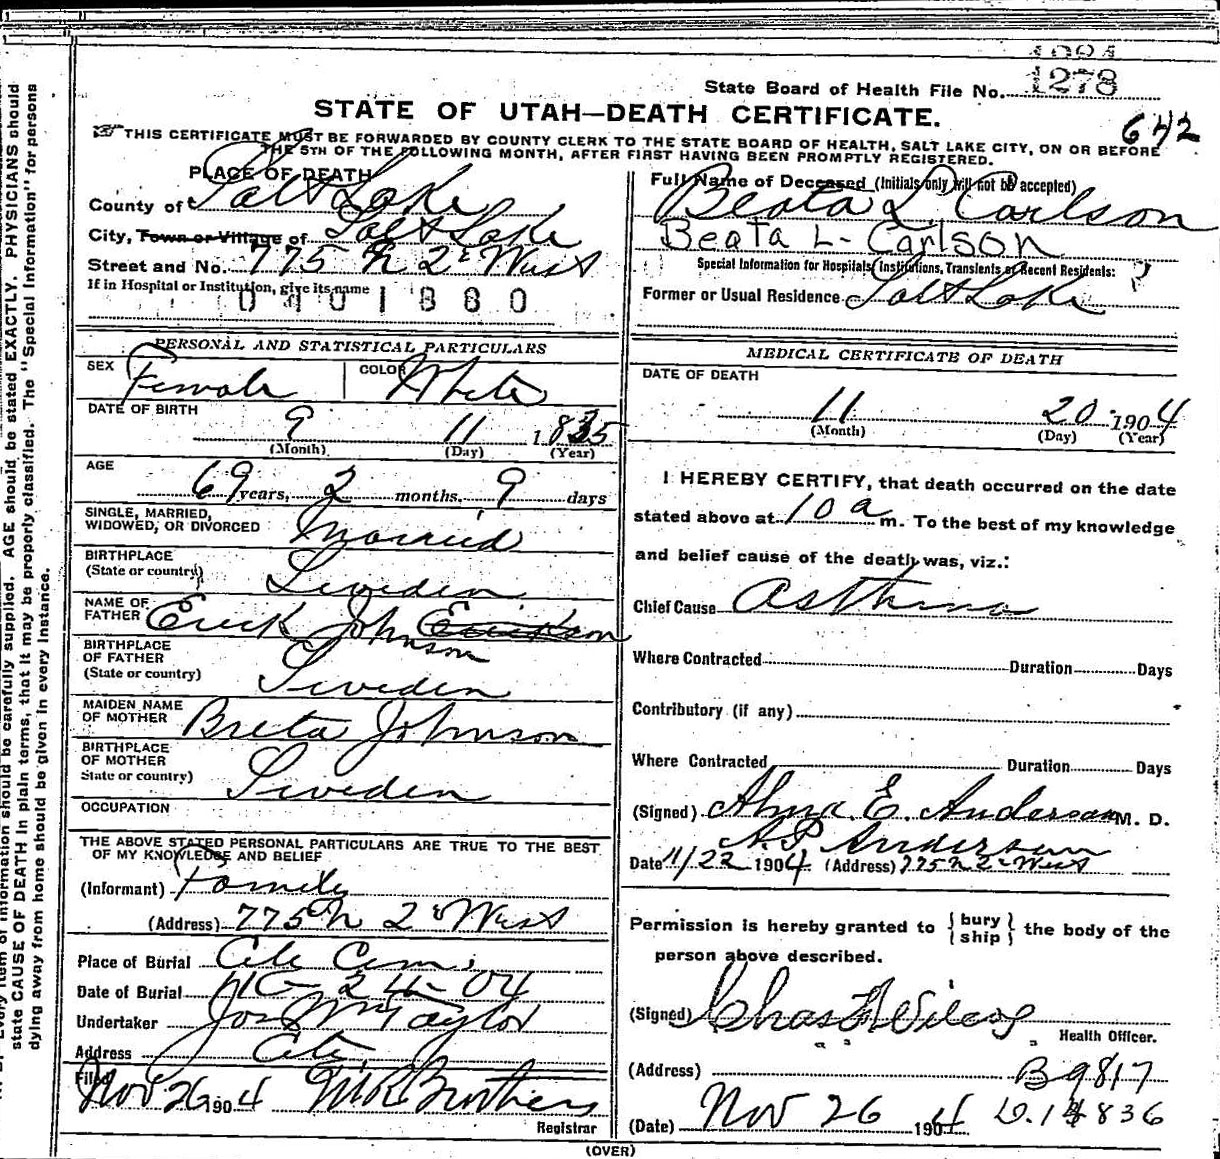 1278
State Board of Health File No.
STATE OF UTAH—DEATH CERTIFICATE.
642
THIS CERTIFICATE MUST BE FORWARDED BY COUNTY CLERK TO THE STATE BOARD OF HEALTH, SALT LAKE CITY, ON OR BEFORE
THE 5TH OF THE FOLLOWING MONTH, AFTER FIRST HAVING BEEN PROMPTLY REGISTERED.
PLACE OF DEATH
County of Salt Lake
City, Town or Village of Salt Lake
Street and No. 775 N 2d West
If in Hospital or Institution, give its name
0401880
Full Name of Deceased (Initials only will not be accepted)
Beata L. Carlson
Beata L- Carlson
Special Information for Hospitals, Institutions, Transients or Recent Residents:
Former or Usual Residence Salt Lake
PERSONAL AND STATISTICAL PARTICULARS
SEX Female COLOR White
DATE OF BIRTH
9 11 1835
(Month) (Day) (Year)
AGE
69 years, 2 months, 9 days
SINGLE, MARRIED,
WIDOWED, OR DIVORCED Married
BIRTHPLACE
(State or country) Sweden
NAME OF
FATHER Erick Johnson Erickson
BIRTHPLACE
OF FATHER
(State or country) Sweden
MAIDEN NAME
OF MOTHER Breta Johnson
BIRTHPLACE
OF MOTHER
State or country) Sweden
OCCUPATION
THE ABOVE STATED PERSONAL PARTICULARS ARE TRUE TO THE BEST
OF MY KNOWLEDGE AND BELIEF
(Informant) Family
(Address) 775 N 2d West
Place of Burial City Cem.
Date of Burial 11-24-04
Undertaker Jos Wm Taylor
Address City
Filed Nov 26 1904 Brothers
Registrar
MEDICAL CERTIFICATE OF DEATH
DATE OF DEATH
11 20 1904
(Month) (Day) (Year)
I HEREBY CERTIFY, that death occurred on the date
stated above at 10 a m. To the best of my knowledge
and belief cause of the death was, viz.:
Chief Cause Asthma
Where Contracted Duration Days
Contributory (if any)
Where Contracted Duration Days
(Signed) Alma E. Anderson M. D.
A.P. Anderson
Date 11/22 1904 (Address) 775 N 2d West
Permission is hereby granted to { bury ship } the body of the
person above described.
(Signed) Chas F Wilcox
Health Officer.
(Address) B 9817
(Date) Nov 26 1904 836
(OVER)
state CAUSE OF DEATH in plain terms, that it may be properly classified. The "Special Information" for persons
dying away from home should be given in every instance.
Every item of information should be carefully supplied. AGE should be stated EXACTLY. PHYSICIANS should